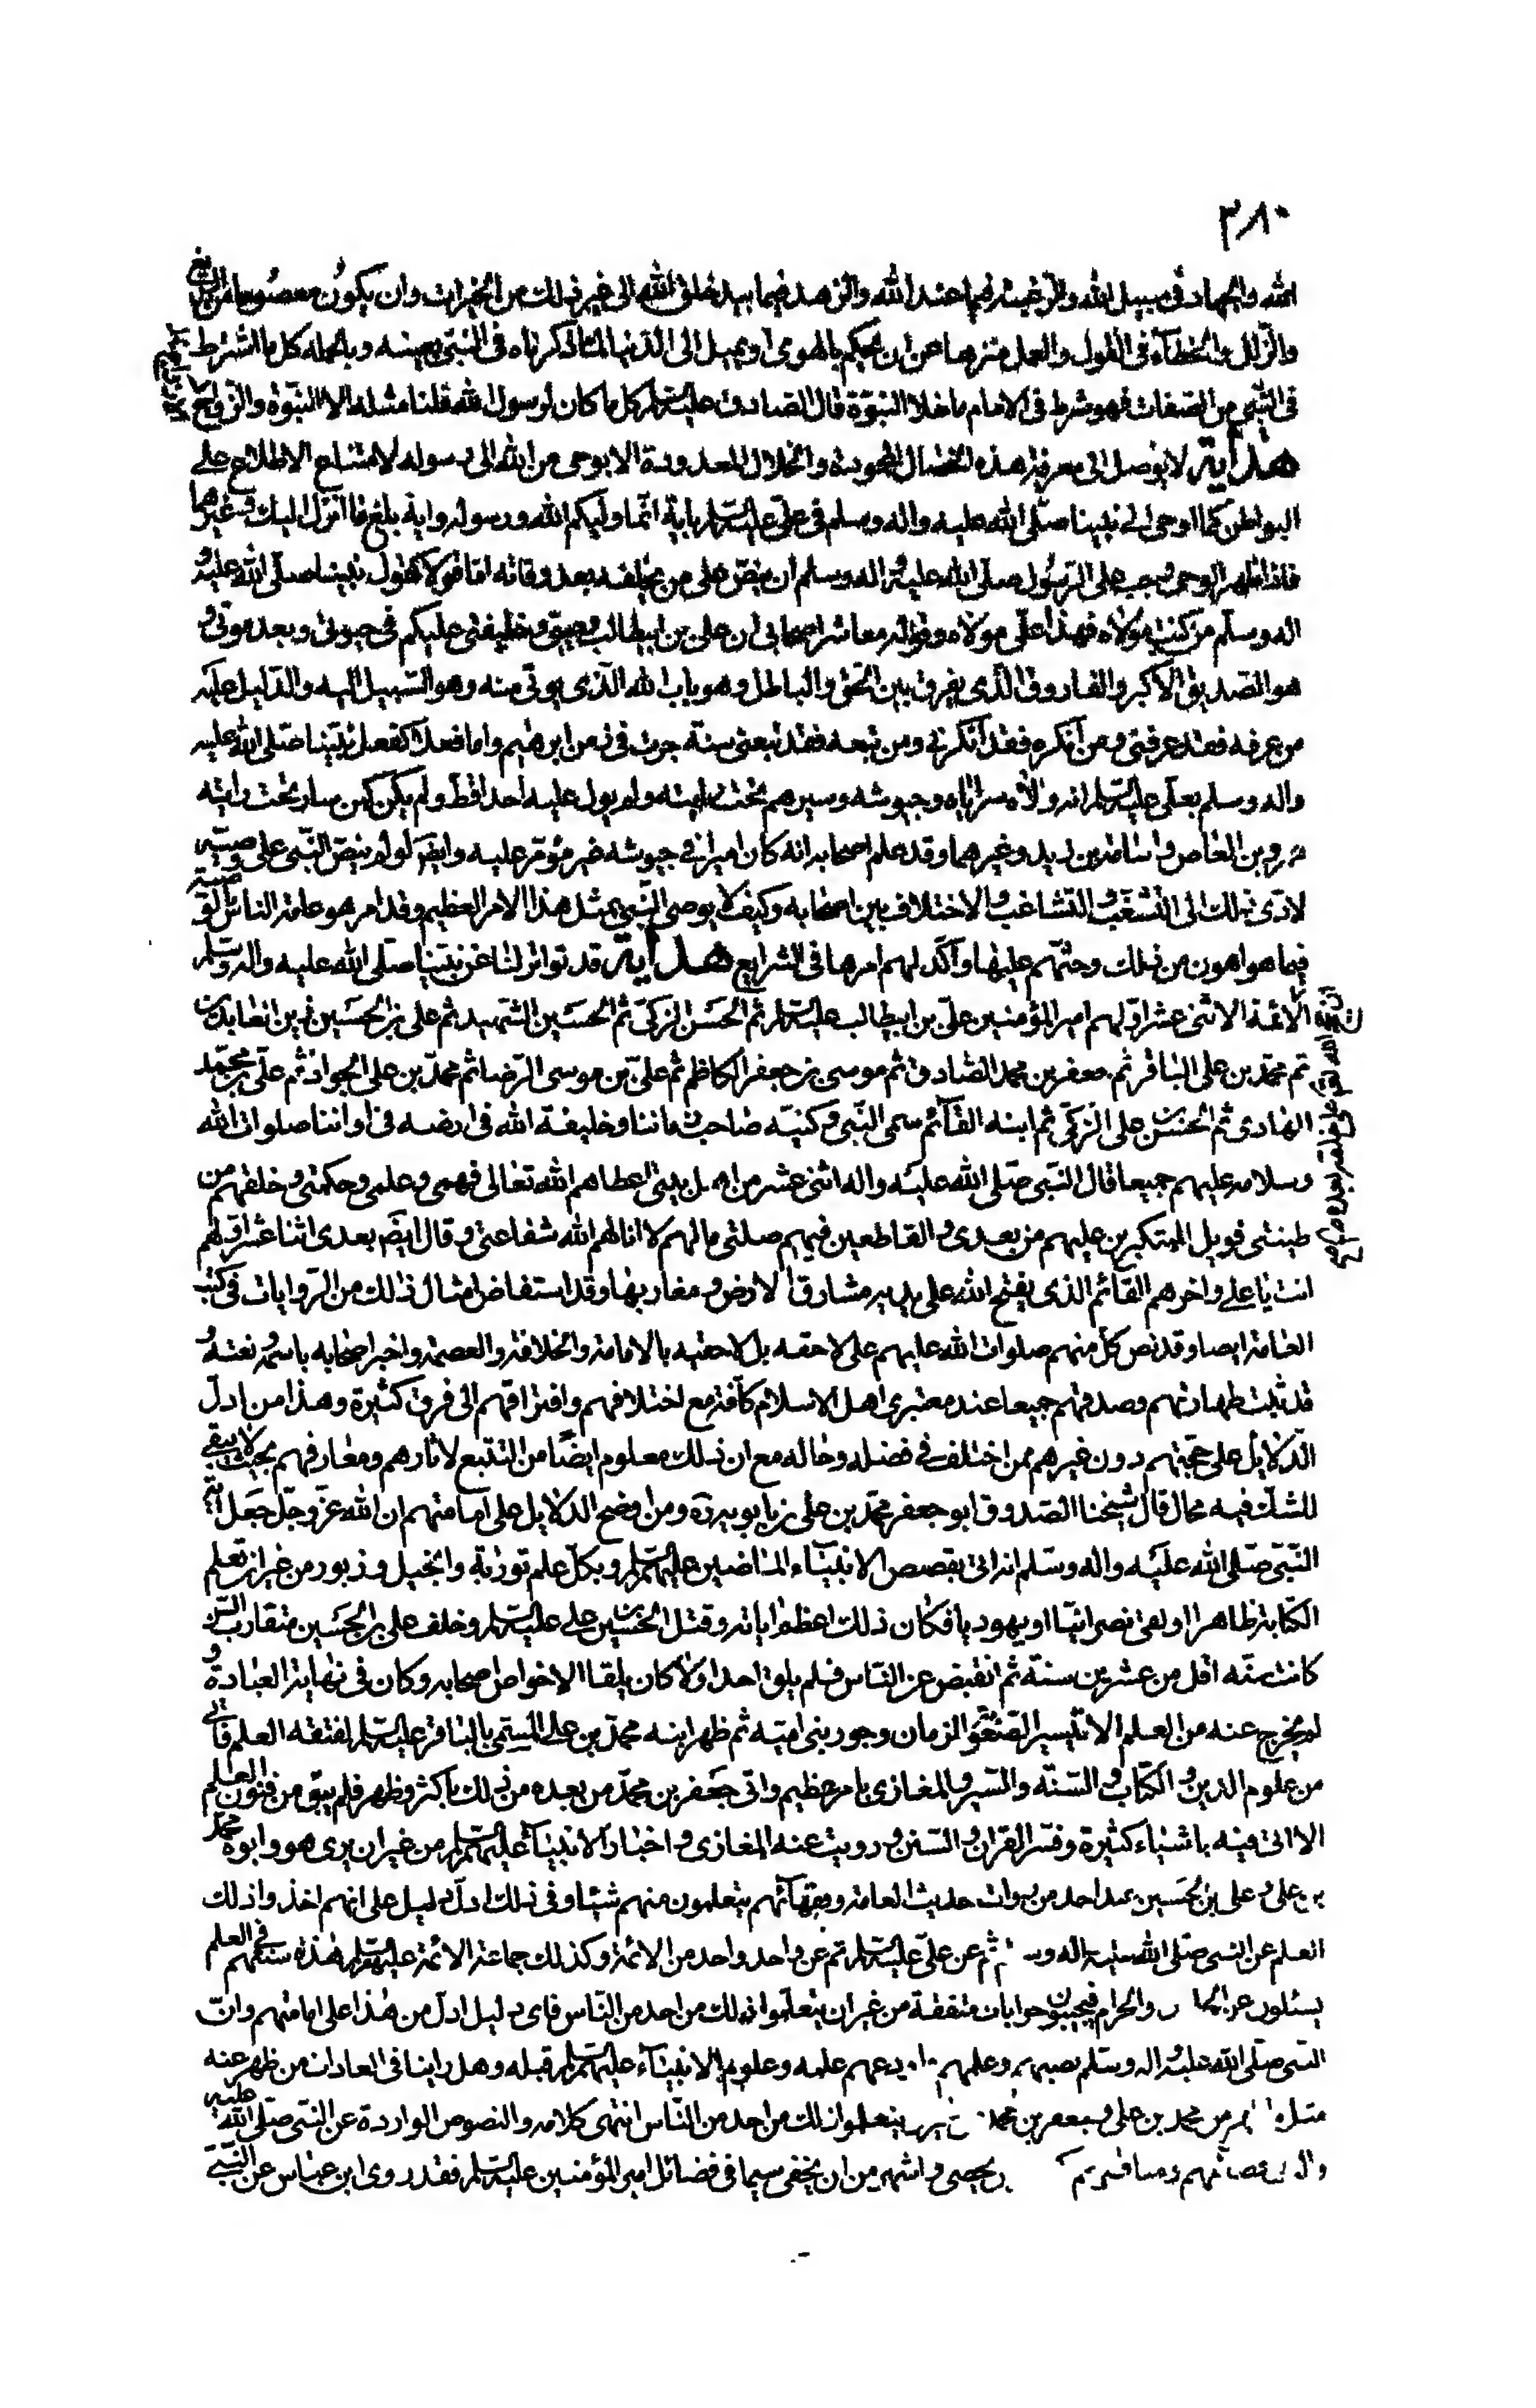 ٣٨٠
الله والجهاد فى سبيل الله والرغبة فيما عند الله والزهد فيما بيد خلق الله الى غير ذلك من الخيرات وان يكون معصوما من الزيغ
والزلل والخطاء فى القول والعمل منزها عن ان يحكم بالهوى او يميل الى الدنيا لما ذكرناه فى النبى بعينه وبالجملة كل ما اشترط
فى النبى من الصفات فهو شرط فى الامام ما خلا النبوة قال الصادق عليه السلام كل ما كان لرسول الله فلنا مثله الا النبوة والازواج
هداية لا يوصل الى معرفة هذه الخصال المحمودة والخلال المعدودة الا بوحى من الله الى رسوله لامتناع الاطلاع على
البواطن كما اوحى الى نبينا صلى الله عليه واله وسلم فى على عليه السلام باية انما وليكم الله ورسوله واية بلغ ما انزل اليك وغيرها
فاذا ظهر الوحى وجب على الرسول صلى الله عليه واله وسلم ان ينص على من يخلفه بعد وفاته اما قولا كقول نبينا صلى الله عليه و
اله وسلم من كنت مولاه فهذا على مولاه وقوله معاشر اصحابى ان على بن ابيطالب وصيى وخليفتى عليكم فى حيوتى وبعد موتى و
هو الصديق الاكبر والفاروق الذى يفرق بين الحق والباطل وهو باب الله الذى يؤتى منه وهو السبيل اليه والدليل عليه
من عرفه فقد عرفنى ومن انكره فقد انكرنى ومن تبعه فقد تبعنى سنة جرت فى من ابرهيم واما فعلا كفعل نبينا صلى الله عليه
واله وسلم بعلى عليه السلام انه ولاه سراياه وجيوشه وسيرهم تحت رايته ولم يول عليه احدا قط ولم يكن كمن سار تحت راية
عمرو بن العاص واسامة بن زيد وغيرهما وقد علم اصحابه انه كان اميرا فى جيوشه غير مؤمر عليه وايضا لو لم ينص النبى على وصيه
لادى ذلك الى التشغب والتشاغب والاختلاف بين اصحابه وكيف لا يوصى النبى بمثل هذا الامر العظيم وقد امر هو عامة الناس بالوصية
فيما هو اهون من ذلك وحثهم عليها واكد لهم امرها فى الشرايع هداية قد تواتر لنا عن نبينا صلى الله عليه واله وسلم
الائمة الاثنى عشر اولهم امير المؤمنين على بن ابيطالب عليه السلام ثم الحسن الزكى ثم الحسين الشهيد ثم على بن الحسين زين العابدين
ثم محمد بن على الباقر ثم جعفر بن محمد الصادق ثم موسى بن جعفر الكاظم ثم على بن موسى الرضا ثم محمد بن على الجواد ثم على بن محمد
الهادى ثم الحسن بن على الزكى ثم ابنه القائم سمى النبى وكنيه صاحب زماننا وخليفة الله فى ارضه فى اواننا صلوات الله
وسلامه عليهم جميعا قال النبى صلى الله عليه واله اثنى عشر من اهل بيتى اعطاهم الله تعالى فهمى وعلمى وحكمتى وخلقهم من
طينتى فويل للمتكبرين عليهم من بعدى والقاطعين فيهم صلتى ما لهم لا انالهم الله شفاعتى وقال ايضا بعدى اثنا عشر اولهم
انت يا على واخرهم القائم الذى يفتح الله على يديه مشارق الارض ومغاربها وقد استفاض امثال ذلك من الروايات فى كتب
العامة ايضا وقد نص كل منهم صلوات الله عليهم على لاحقه بل لاحقيه بالامامة والخلافة والعصمة واخبر اصحابه باسمه ونعته و
قد ثبت طهارتهم وصدقهم جميعا عند معتبرى اهل الاسلام كافة مع اختلافهم وافتراقهم الى فرق كثيرة وهذا من ادل
الدلايل على حجيتهم دون غيرهم ممن اختلف فى فضله وحاله مع ان ذلك معلوم ايضا من التتبع لاثارهم ومعارفهم بحيث لا يبقى
للشك فيه مجال قال شيخنا الصدوق ابو جعفر محمد بن على بن بابويه ره ومن اوضح الدلايل على امامتهم ان الله عز وجل جعل اية
النبى صلى الله عليه واله وسلم انه اتى بقصص الانبياء الماضين عليهم السلام وبكل علم تورية وانجيل وزبور من غير ان تعلم
الكتابة ظاهرا او لقى نصرانيا او يهوديا فكان ذلك اعظم اياته وقتل الحسين بن على عليه السلام وخلف على بن الحسين متقارب السن
كانت سنه اقل من عشرين سنة ثم انقبض عن الناس فلم يلق احدا ولا كان يلقاه الا خواص اصحابه وكان فى نهاية العبادة و
لم يخرج عنه من العلم الا يسيرا لصعوبة الزمان وجور بنى امية ثم ظهر ابنه محمد بن على المسمى بالباقر عليه السلام لفتقه العلم فاتى
من علوم الدين والكتاب والسنة والسير والمغازى بامر عظيم واتى جعفر بن محمد من بعده من ذلك باكثر وظهر فلم يبق من فنون العلم
الا اتى فيه باشياء كثيرة وفسر القران والسنن ورويت عنه المغازى واخبار الانبياء عليهم السلام من غير ان يرى هو وابوه محمد
بن على وعلى بن الحسين عند احد من رواة حديث العامة وفقهائهم يتعلمون منهم شيئا وفى ذلك ادل دليل على انهم اخذوا ذلك
العلم عن النبى صلى الله عليه واله وسلم ثم عن على عليه السلام ثم عن واحد واحد من الائمة وكذلك جماعة الائمة عليهم السلام هذه سنتهم فى العلم
يسئلون عن الحلال والحرام فيجيبون جوابات متفقة من غير ان يتعلموا ذلك من احد من الناس فاى دليل ادل من هذا على امامتهم وان
النبى صلى الله عليه واله وسلم نصبهم وعلمهم واودعهم علمه وعلوم الانبياء عليهم السلام قبله وهل راينا فى العادات من ظهر عنه
مثل ما ظهر من محمد بن على وجعفر بن محمد من غير ان يتعلموا ذلك من احد من الناس انتهى كلامه والنصوص الواردة عن النبى صلى الله عليه
واله فى فضائلهم ومناقبهم يحصى واشهر من ان يخفى سيما فى فضائل امير المؤمنين عليه السلام فقد روى ابن عباس عن النبى